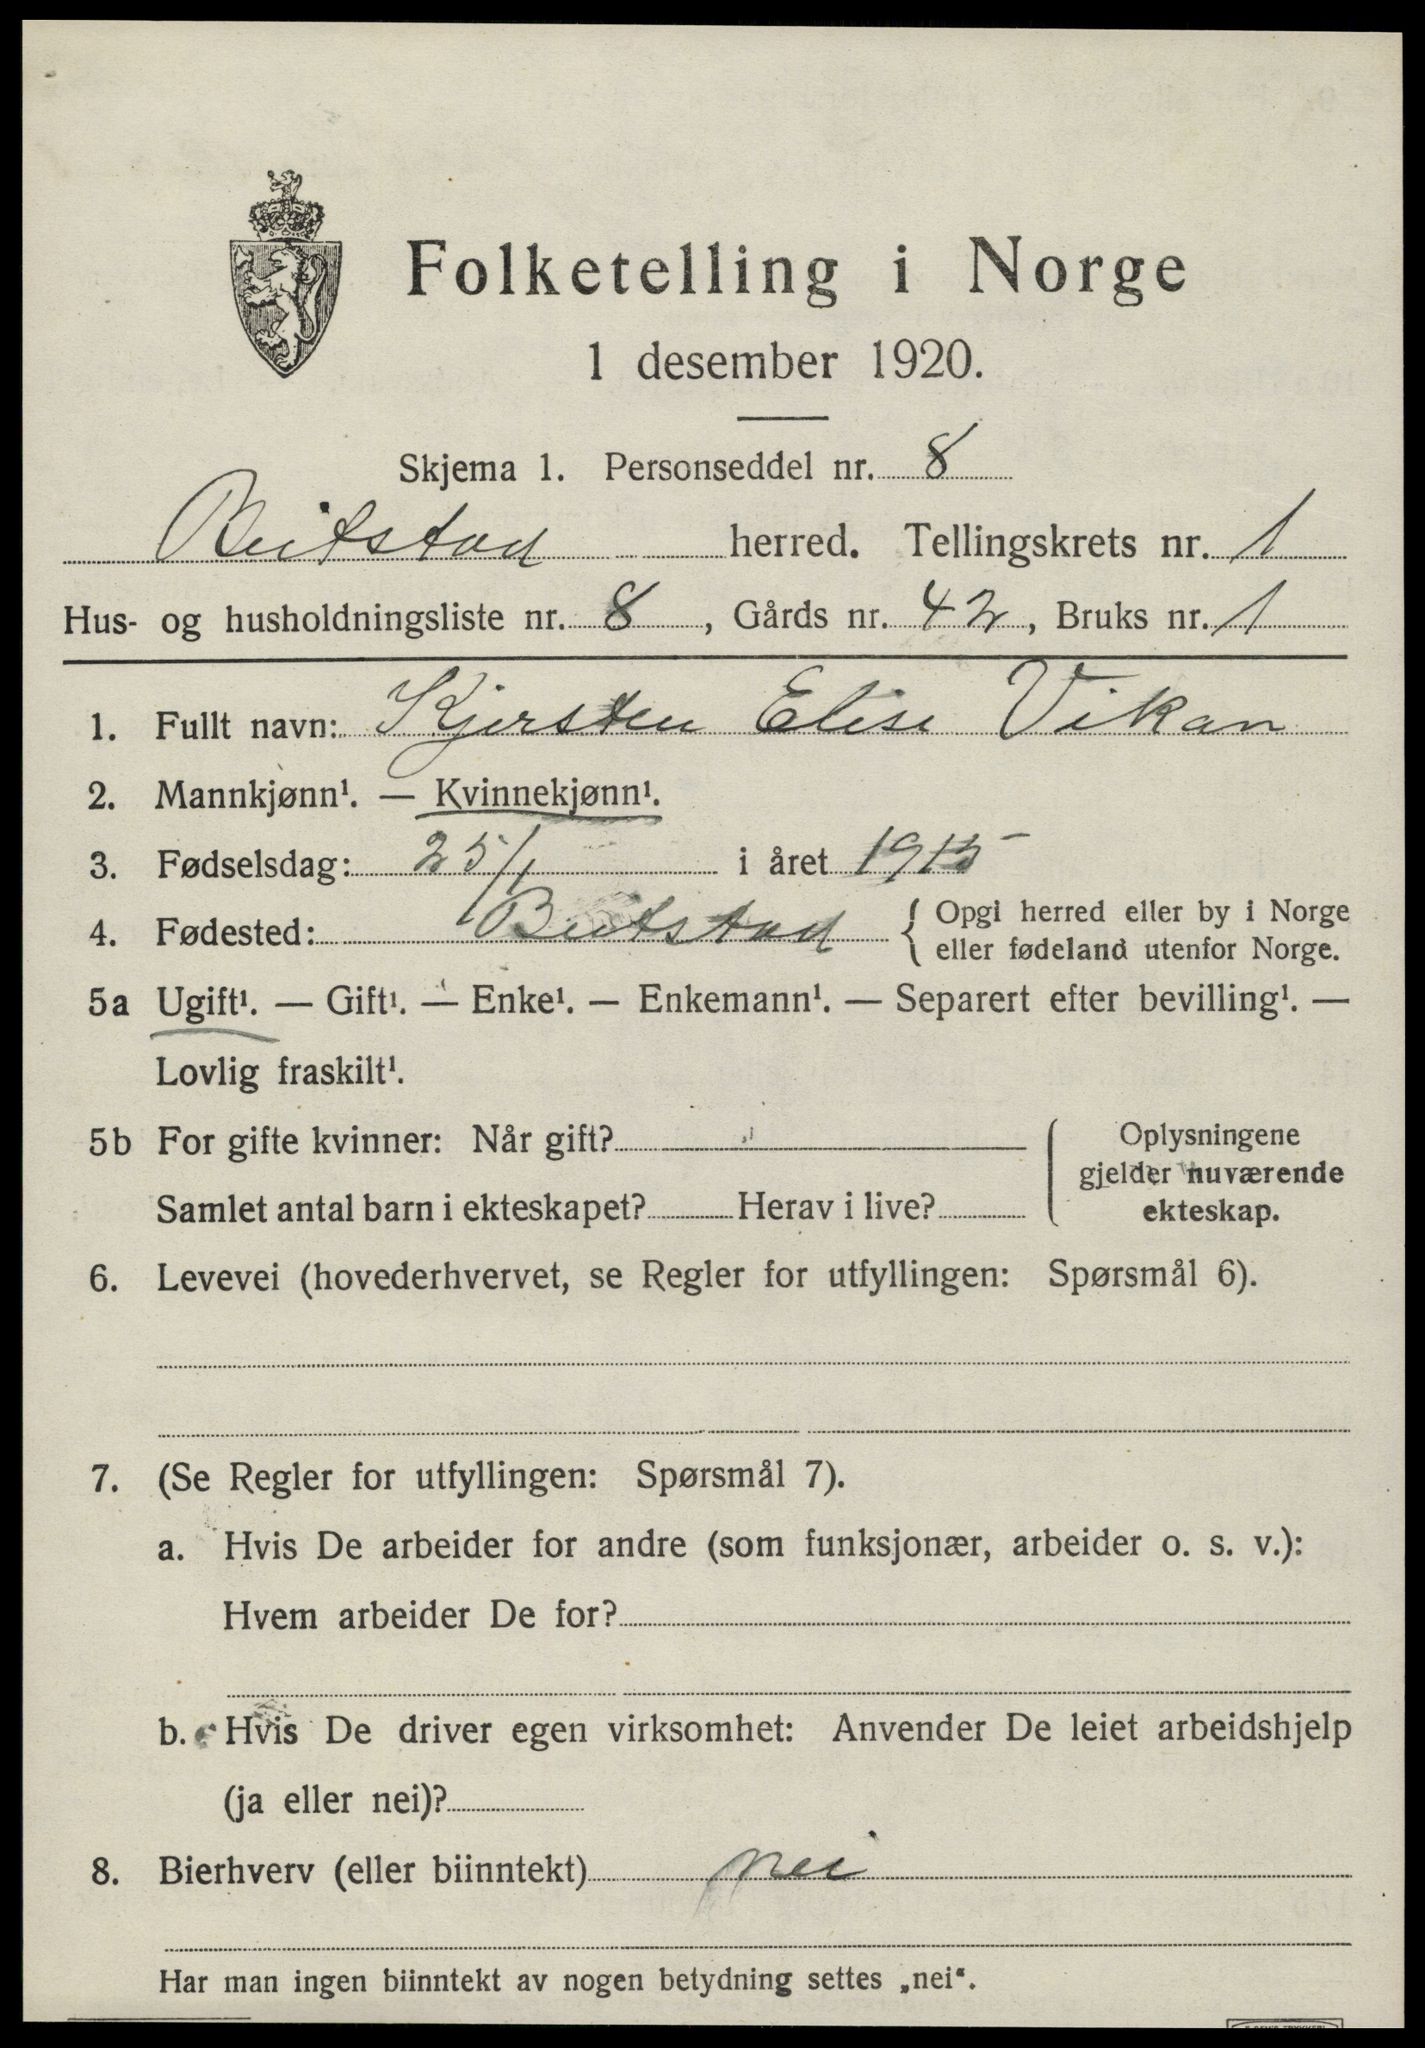 Folketelling i Norge
1 desember 1920.
Skjema 1. Personseddel nr. 8
Beitstad herred. Tellingskrets nr. 1
Hus- og husholdningsliste nr. 8, Gårds nr. 42, Bruks nr. 1
1. Fullt navn: Kjersten Elise Vikan
2. Mannkjønn¹. — Kvinnekjønn¹.
3. Fødselsdag: 25/1 i året 1915
4. Fødested: Beitstad { Opgi herred eller by i Norge
eller fødeland utenfor Norge.
5a Ugift¹. — Gift¹. — Enke¹. — Enkemann¹. — Separert efter bevilling¹. —
Lovlig fraskilt¹.
5b For gifte kvinner: Når gift?
Samlet antal barn i ekteskapet? Herav i live?
Oplysningene
gjelder nuværende
ekteskap.
6. Levevei (hovederhvervet, se Regler for utfyllingen: Spørsmål 6).
7. (Se Regler for utfyllingen: Spørsmål 7).
a. Hvis De arbeider for andre (som funksjonær, arbeider o. s. v.):
Hvem arbeider De for?
b. Hvis De driver egen virksomhet: Anvender De leiet arbeidshjelp
(ja eller nei)?
8. Bierhverv (eller biinntekt) nei
Har man ingen biinntekt av nogen betydning settes „nei“.